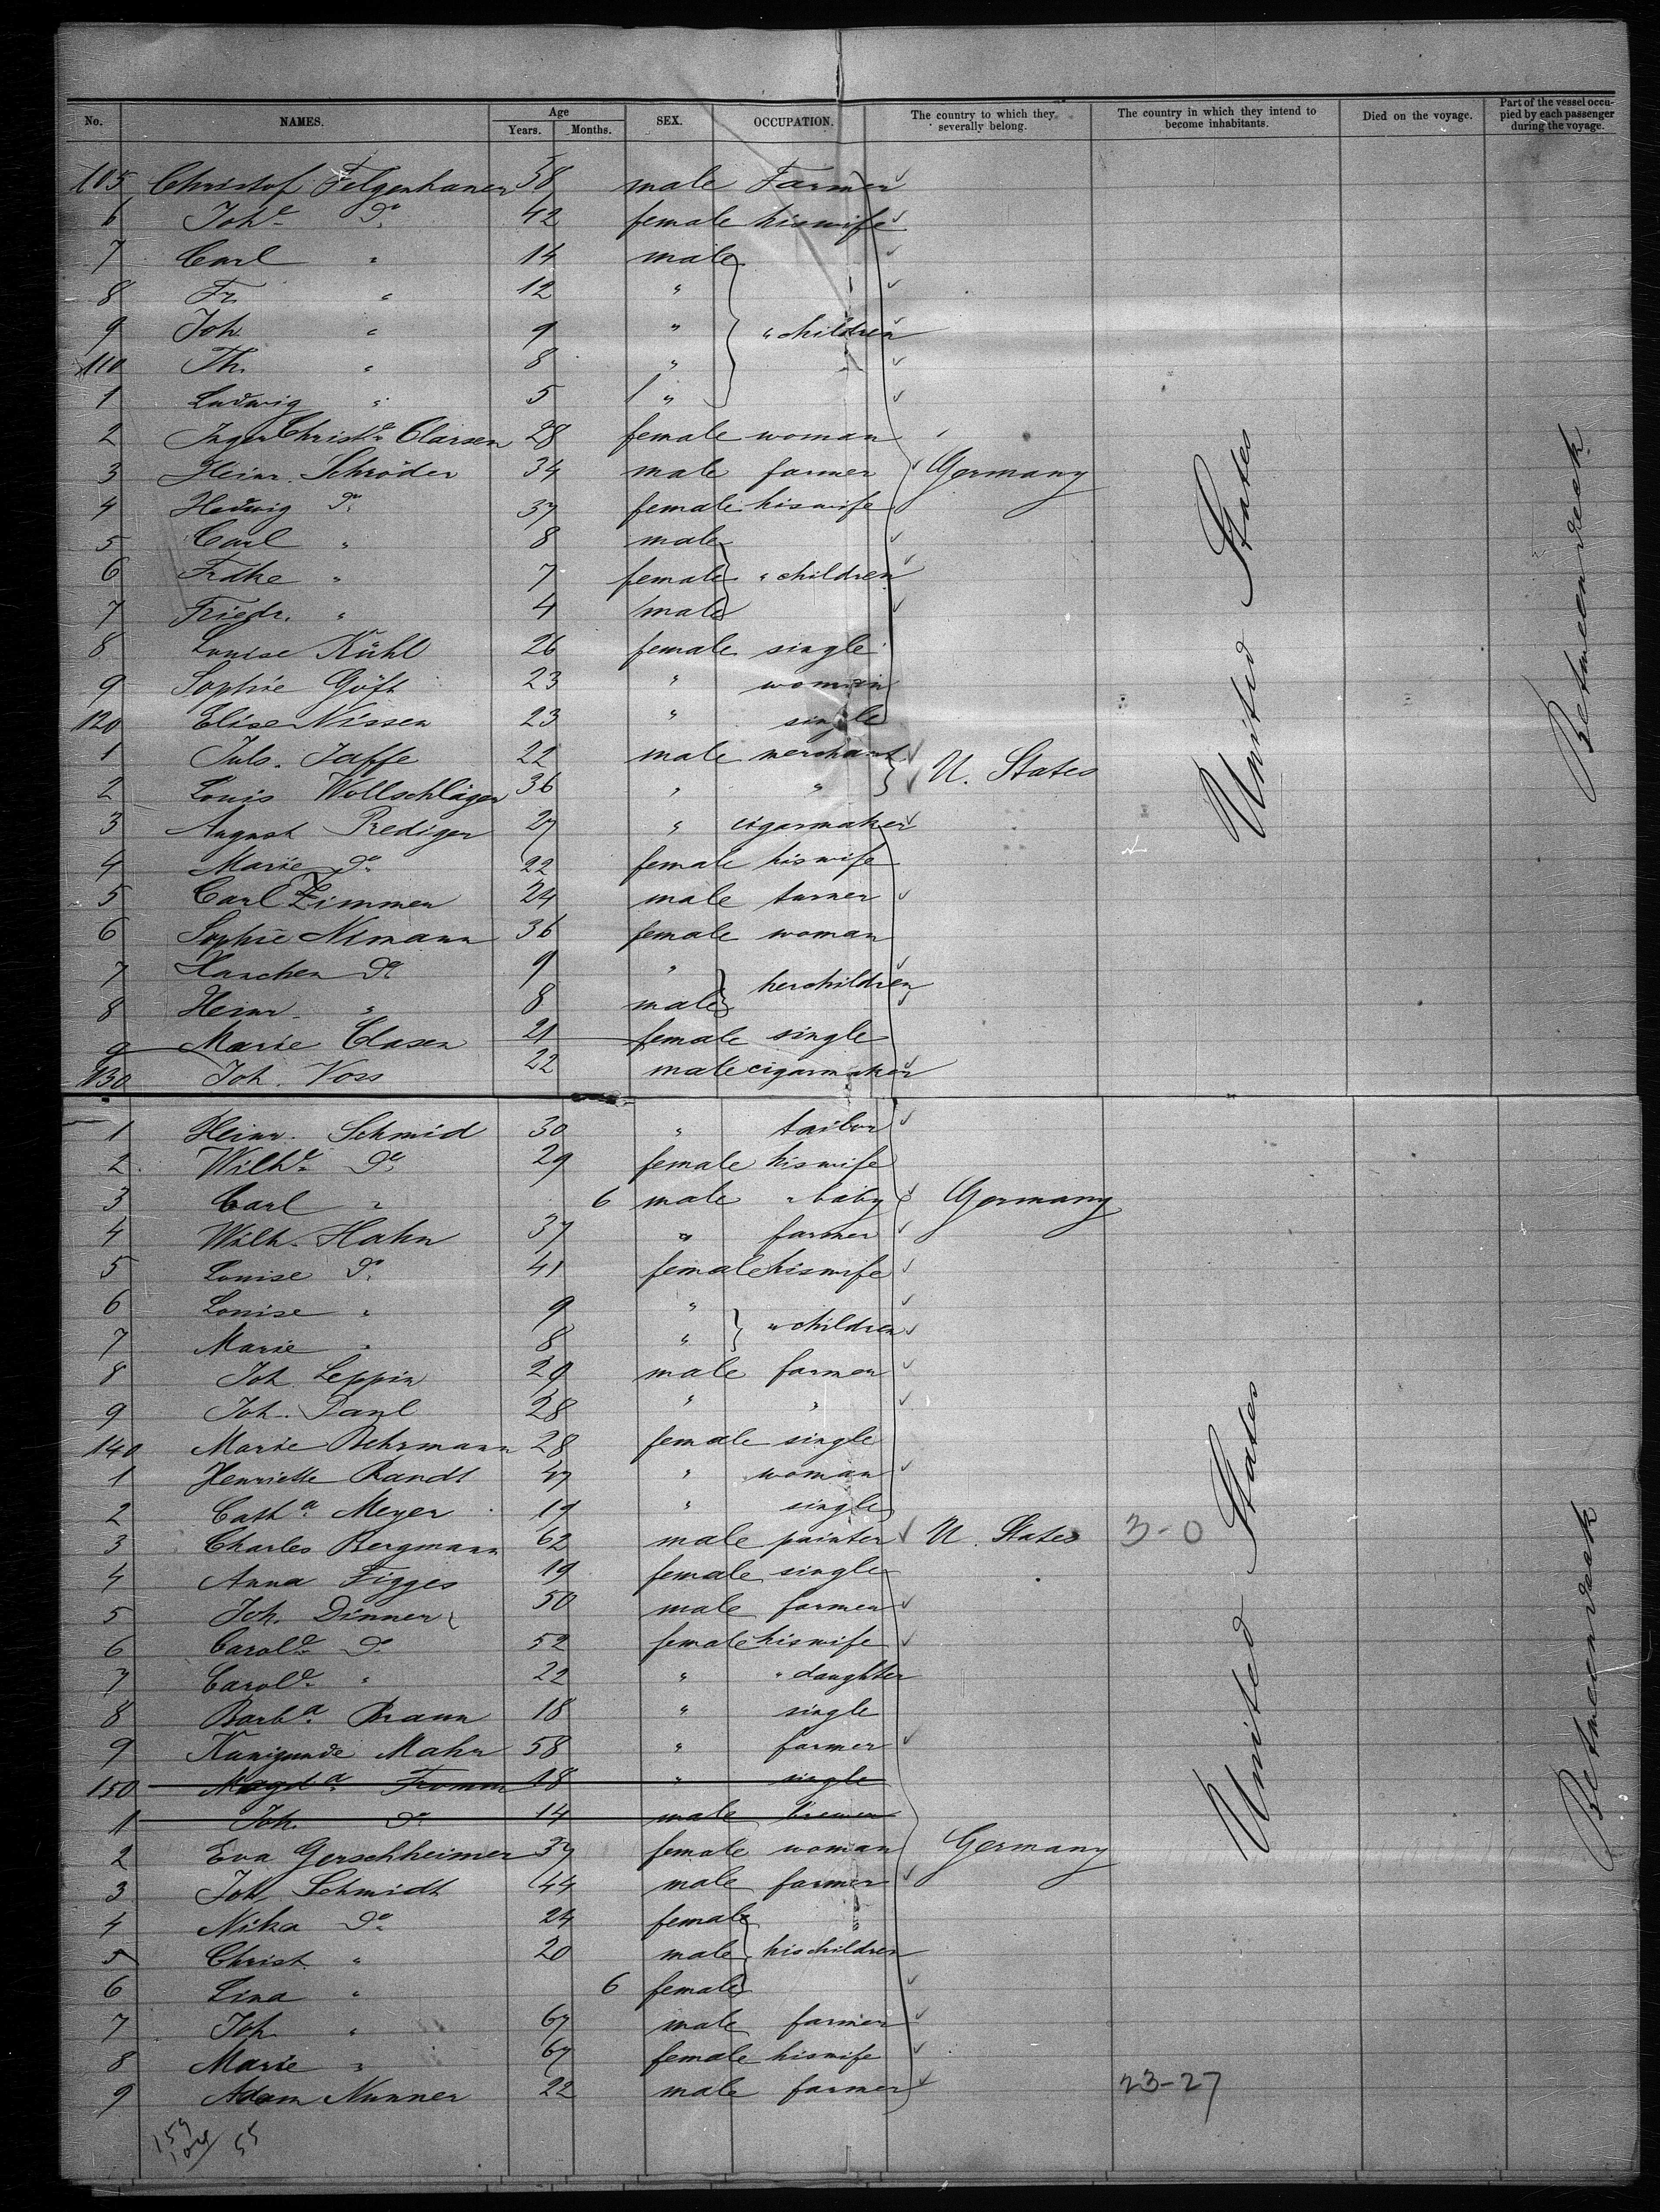 No. NAMES. Age Years. Months. SEX. OCCUPATION. The country to which they severally belong. The country in which they intend to become inhabitants. Died on the voyage. Part of the vessel occupied by each passenger during the voyage.
105 Christof Felgenhauer 58 male Farmer
6 Joh.e do. 42 female his wife
7 Carl " 14 male
8 Fr. " 12 "
9 Joh. " 9 " " children
110 Th. " 8 "
1 Ludwig " 5 "
2 Inger Christ.e Clarsen 28 female woman
3 Heinr. Schröder 34 male farmer Germany
4 Hedwig do. 37 female his wife
5 Carl " 8 male
6 Frdke " 7 female " children
7 Friedr. " 4 male
8 Louise Kühl 26 female single
9 Sophie Göft 23 " woman
120 Elise Nissen 23 " single
1 Juls. Jaffe 22 male merchant U. States
2 Louis Wollschläger 36 " "
3 August Prediger 27 " cigarmaker
4 Marie do. 22 female his wife
5 Carl Zimmer 24 male turner
6 Sophie Nimann 36 female woman
7 Hanchen do. 9 " her children
8 Heinr. " 8 male
9 Marie Clasen 21 female single
130 Joh. Voss 22 male cigarmaker
United States
Betweendeck
1 Heinr. Schmid 30 " tailor
2 Wilh.e do. 29 female his wife
3 Carl " 6 male " baby Germany
4 Wilh. Hahn 37 " farmer
5 Louise do. 41 female his wife
6 Louise " 9 " " children
7 Marie " 8 "
8 Joh. Leppin 29 male farmer
9 Joh. Paul 28 " "
140 Marie Behrmann 28 female single
1 Henriette Randt 47 " woman
2 Cath.a Meyer 19 " single
3 Charles Bergmann 62 male painter U. States 3-0
4 Anna Figges 19 female single
5 Joh. Dinner 50 male farmer
6 Carol.e do. 52 female his wife
7 Carol.e " 22 " " daughter
8 Barb.a Braun 18 " single
9 Kunigunde Mahr 58 " farmer
150 Magd.a Fromm 18 " single
1 Joh. do. 14 male brewer
2 Eva Gerschheimer 37 female woman Germany
3 Joh. Schmidt 44 male farmer
4 Nika do. 24 female
5 Christ. " 20 male his children
6 Lina " 6 female
7 Joh. " 67 male farmer
8 Marie " 67 female his wife
9 Adam Nunner 22 male farmer 23-27
United States
Betweendeck
159
104 55